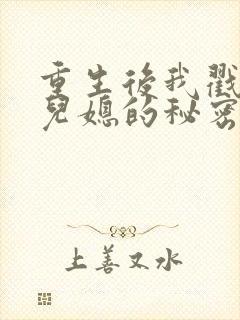 重生後我戳
兒媳的秘密
上善又水